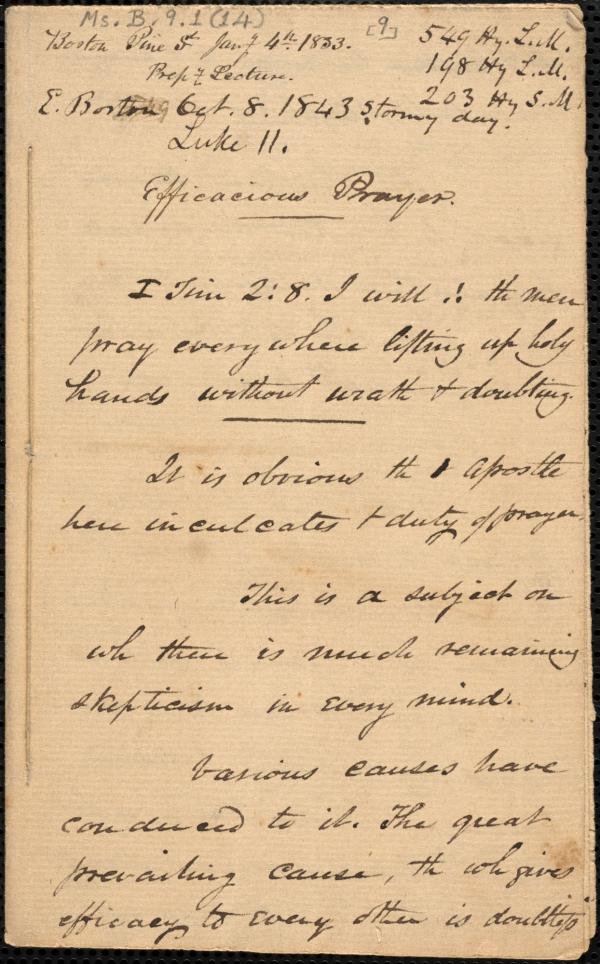 Ms. B. 9. 1 (14)
[9]
Boston Pine St Jany 4th 1833.
Prepy Lecture.
549 Hy. L. M.
198 Hy L. M.
203 Hy S. M
E. Boston Oct. 8. 1843 stormy day.
Luke 11.
Efficacious Prayer.
I Tim 2:8. I will th men
pray everywhere lifting up holy
hands without wrath & doubting.
It is obvious th Apostle
here inculcates + duty of prayer.
This is a subject on
wh there is much remaining
skepticism in every mind.
Various causes have
conduced to it. The great
prevailing cause, th wh gives
efficacy to every other is